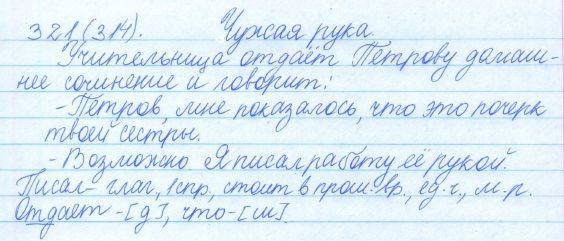 321(314). Чужая рука.
Учительница отдаёт Петрову домаш-
нее сочинение и говорит:
- Петров, мне показалось, что это почерк
твоей сестры.
- Возможно. Я писал работу её рукой.
Писал- глаг, 1 спр, стоит в прош. вр., ед.ч., м.р.
Отдает -[д], что-[ш].